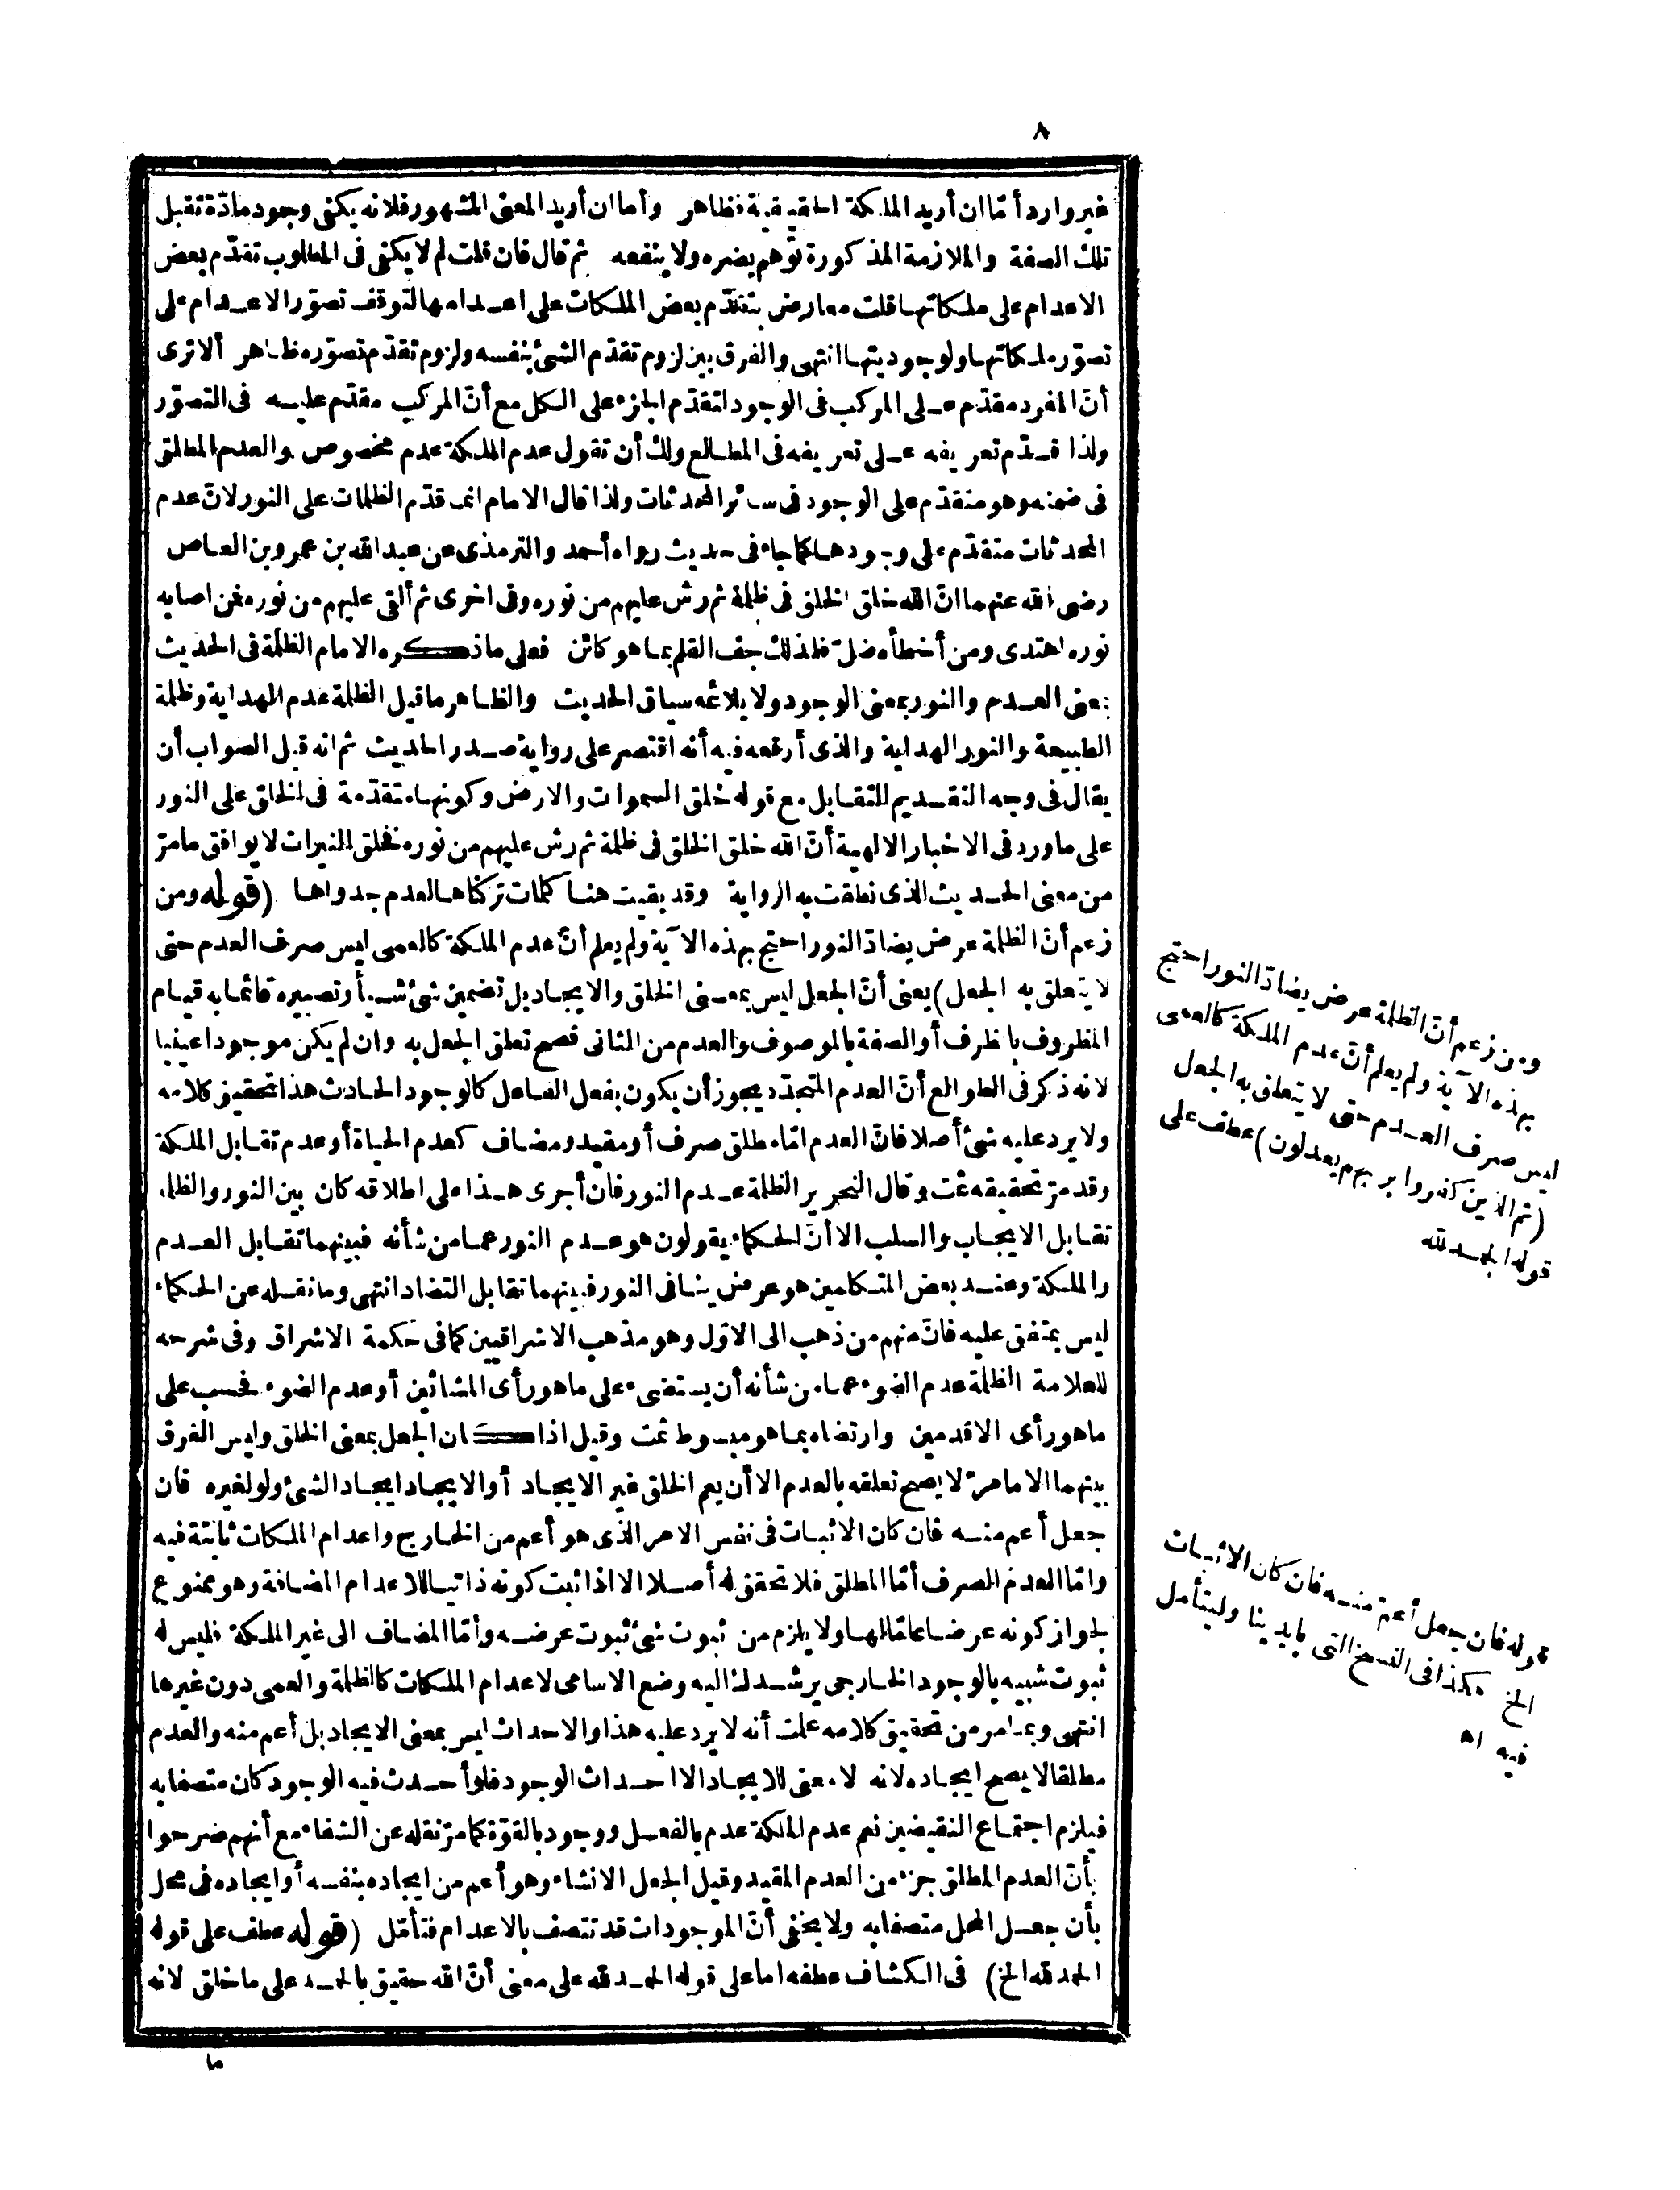 ٨
غير وارد أمّا ان أريد الملكة الحقيقية فظاهر وأما ان أريد المعنى المشهور فلانه يكفى وجود مادّة تقبل
تلك الصفة والملازمة المذكورة توهم يضره ولا ينفعه ثم قال فان قلت لم لا يكفى فى المطلوب تقدّم بعض
الاعدام على ملكاتها قلت معارض بتقدّم بعض الملكات على اعدامها لتوقف تصوّر الاعدام على
تصوّر ملكاتها ولوجوديتها انتهى والفرق بين لزوم تقدّم الشئ بنفسه ولزوم تقدّم تصوّره ظاهر ألا ترى
أنّ المفرد مقدّم على المركب فى الوجود لتقدّم الجزء على الكل مع أنّ المركب مقدّم عليه فى التصوّر
ولذا قدّم تعريفه على تعريفه فى المطالع ولك أن تقول عدم الملكة عدم مخصوص والعدم المطلق
فى ضمنه وهو متقدّم على الوجود فى سائر المحدثات ولذا قال الامام انما قدّم الظلمات على النور لانّ عدم
المحدثات متقدّم على وجودها كما جاء فى حديث رواه أحمد والترمذى عن عبد الله بن عمرو بن العاص
رضى الله عنهما انّ الله خلق الخلق فى ظلمة ثم رش عليهم من نوره وفى اخرى ثم ألقى عليهم من نوره فمن اصابه
نوره اهتدى ومن أخطأه ضلّ فلذلك جف القلم بما هو كائن فعلى ما ذكره الامام الظلمة فى الحديث
بمعنى العدم والنور بمعنى الوجود ولا يلائمه سياق الحديث والظاهر ما قيل الظلمة عدم الهداية وظلمة
الطبيعة والنور الهداية والذى أوقعه فيه أنه اقتصر على رواية صدر الحديث ثم انه قيل الصواب أن
يقال فى وجه التقديم للتقابل مع قوله خلق السموات والارض وكونهما متقدّمة فى الخلق على النور
على ما ورد فى الاخبار الالهية أنّ الله خلق الخلق فى ظلمة ثم رش عليهم من نوره فخلق النيرات لا يوافق ما مرّ
من معنى الحديث الذى نطقت به الرواية وقد بقيت هنا كلمات تركناها لعدم جدواها (قوله ومن
زعم أنّ الظلمة عرض يضادّ النور احتج بهذه الآية ولم يعلم أنّ عدم الملكة كالعمى ليس صرف العدم حتى
لا يتعلق به الجعل) يعنى أنّ الجعل ليس بمعنى الخلق والايجاد بل تضمين شئ شيأ وتصييره قائما به قيام
المظروف بالظرف أو الصفة بالموصوف والعدم من الثانى فصح تعلق الجعل به وان لم يكن موجودا عينيا
لانه ذكر فى الطوالع أنّ العدم المتجدّد يجوز أن يكون بفعل الفاعل كالوجود الحادث هذا تحقيق كلامه
ولا يرد عليه شئ أصلا فانّ العدم امّا مطلق صرف أو مقيد ومضاف كعدم الحياة أو عدم تقابل الملكة
وقد مرّ تحقيقه ثمت وقال النحرير الظلمة عدم النور فان أجرى هذا على اطلاقه كان بين النور والظلمة
تقابل الايجاب والسلب الا أنّ الحكماء يقولون هو عدم النور عما من شأنه فبينهما تقابل العدم
والملكة وعند بعض المتكلمين هو عرض ينافى النور فبينهما تقابل التضاد انتهى وما نقله عن الحكماء
ليس بمتفق عليه فانّ منهم من ذهب الى الاوّل وهو مذهب الاشراقيين كما فى حكمة الاشراق وفى شرحه
للعلامة الظلمة عدم الضوء عما من شأنه أن يستضىء على ما هو رأى المشائين أو عدم الضوء فحسب على
ما هو رأى الاقدمين وارتضاه بما هو مبسوط ثمت وقيل اذا كان الجعل بمعنى الخلق وليس الفرق
بينهما الا ما مرّ لا يصح تعلقه بالعدم الا أن يعم الخلق غير الايجاد أو الايجاد ايجاد الشئ ولو لغيره فان
جعل أعم منه فان كان الاثبات فى نفس الامر الذى هو أعم من الخارج واعدام الملكات ثابتة فيه
وامّا العدم الصرف أمّا المطلق فلا تحقق له أصلا الا اذا ثبت كونه ذاتيا للاعدام المضافة وهو ممنوع
لجواز كونه عرضا عامّا لها ولا يلزم من ثبوت شئ ثبوت عرضه وأمّا المضاف الى غير الملكة فليس له
ثبوت شبيه بالوجود الخارجى يرشدك اليه وضع الاسامى لاعدام الملكات كالظلمة والعمى دون غيرها
انتهى وبما مر من تحقيق كلامه علمت أنه لا يرد عليه هذا والاحداث ليس بمعنى الايجاد بل أعم منه والعدم
مطلقا لا يصح ايجاده لانه لا معنى للايجاد الا احداث الوجود فلو أحدث فيه الوجود كان متصفا به
فيلزم اجتماع النقيضين نعم عدم الملكة عدم بالفعل ووجود بالقوّة كما مرّ نقله عن الشفاء مع أنهم صرحوا
بأنّ العدم المطلق جزء من العدم المقيد وقيل الجعل الانشاء وهو أعم من ايجاده بنفسه أو ايجاده فى محل
بأن جعل المحل متصفا به ولا يخفى أنّ الموجودات قد تتصف بالاعدام فتأمّل (قوله عطف على قوله
الحمد لله الخ) فى الكشاف عطفه اما على قوله الحمد لله على معنى أنّ الله حقيق بالحمد على ما خلق لانه
ما
ومن زعم أنّ الظلمة عرض يضادّ النور احتج
بهذه الآية ولم يعلم أنّ عدم الملكة كالعمى
ليس صرف العدم حتى لا يتعلق به الجعل
(ثم الذين كفروا بربهم يعدلون) عطف على
قوله الحمد لله
قوله فان جعل أعمّ منه فان كان الاثبات
الخ هكذا فى النسخ التى بايدينا وليتأمل
فيه اه